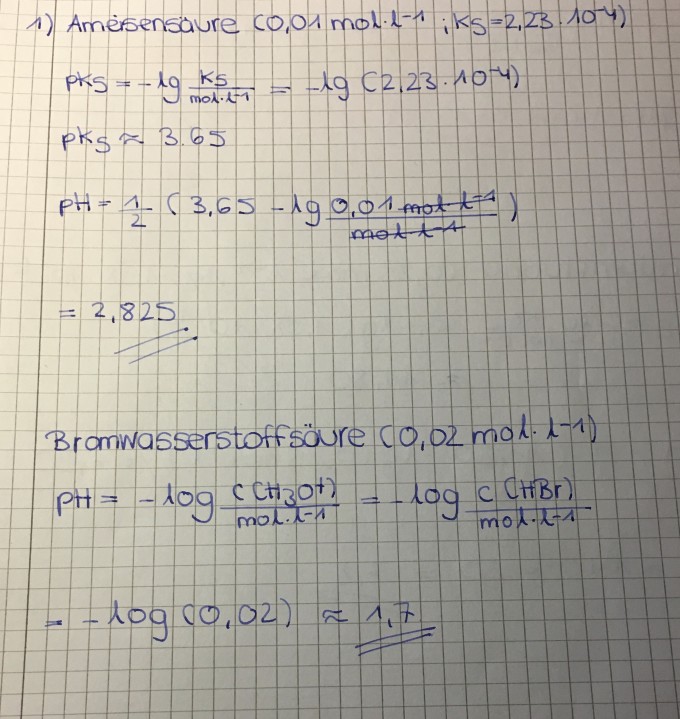 1) Ameisensäure (0,01 mol·l-1 ; KS=2,23·10-4)
pKS = -lg KS/mol·l-1 = -lg (2,23·10-4)
pKS ≈ 3.65
pH = 1/2 (3,65 - lg 0,01 mol l-1/mol l-1)
= 2,825
Bromwasserstoffsäure (0,02 mol·l-1)
pH = -log c(H3O+)/mol·l-1 = -log c(HBr)/mol·l-1
= -log (0,02) ≈ 1,7